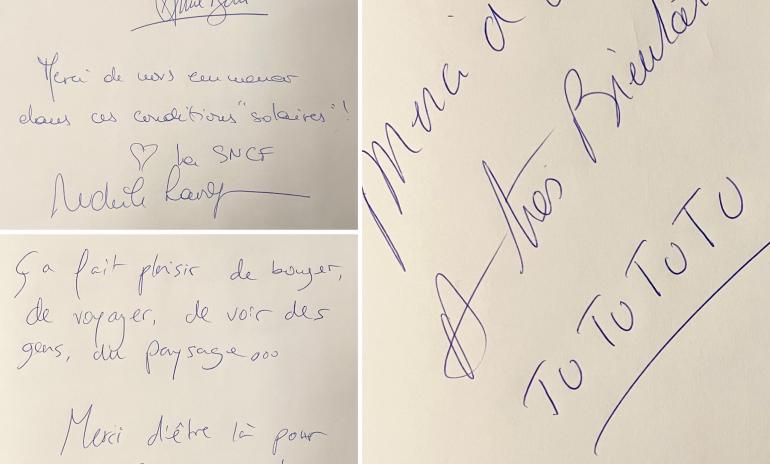 Merci de nous emmener
dans ces conditions "solaires" !
♡ la SNCF
Ça fait plaisir de bouger,
de voyager, de voir des
gens, du paysage...
Merci d'être là pour
Merci d
A très Bientôt
TUTUTUTU